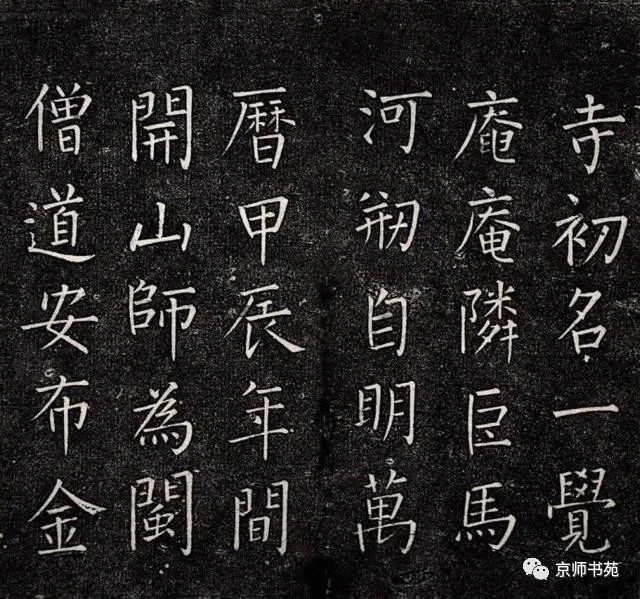 寺初名一覺
庵庵隣臣馬
河剏自明萬
曆甲辰年間
開山師為閩
僧道安布金
京师书苑